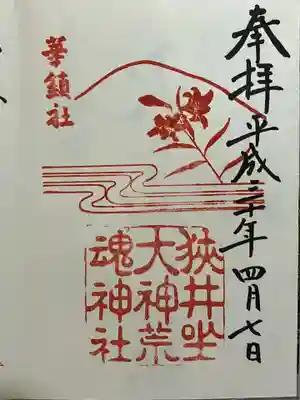 奉拝 平成三十年四月七日
華鎮社
狭井坐
大神荒
魂神社